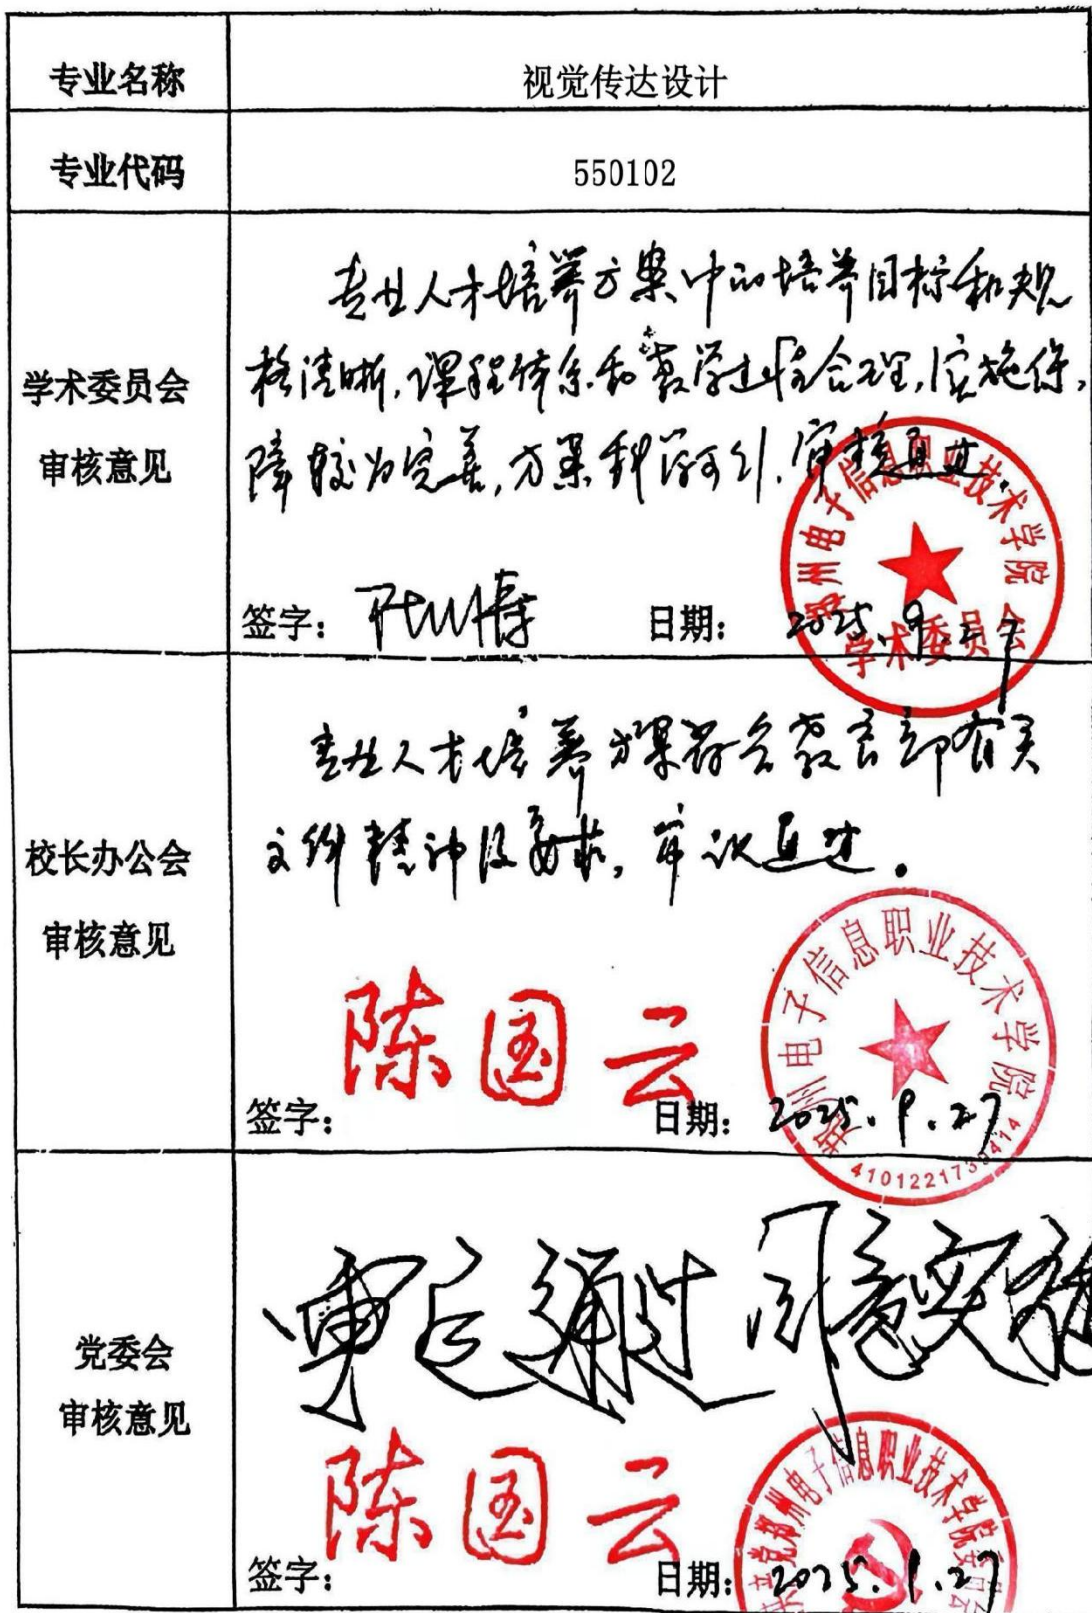 专业名称 视觉传达设计
专业代码 550102
学术委员会
审核意见
专业人才培养方案中的培养目标和规
格清晰,课程体系和教学进程合理,实施保
障较为完善,方案科学可行,审核通过。
郑州电子信息职业技术学院
学术委员会
签字: 日期: 2025.9.27
校长办公会
审核意见
专业人才培养方案符合教育部有关
文件精神及要求,审议通过。
郑州电子信息职业技术学院
陈国云
签字: 日期: 2025.9.27
党委会
审核意见
审定通过 同意实施
郑州电子信息职业技术学院
陈国云
签字: 日期: 2025.9.27